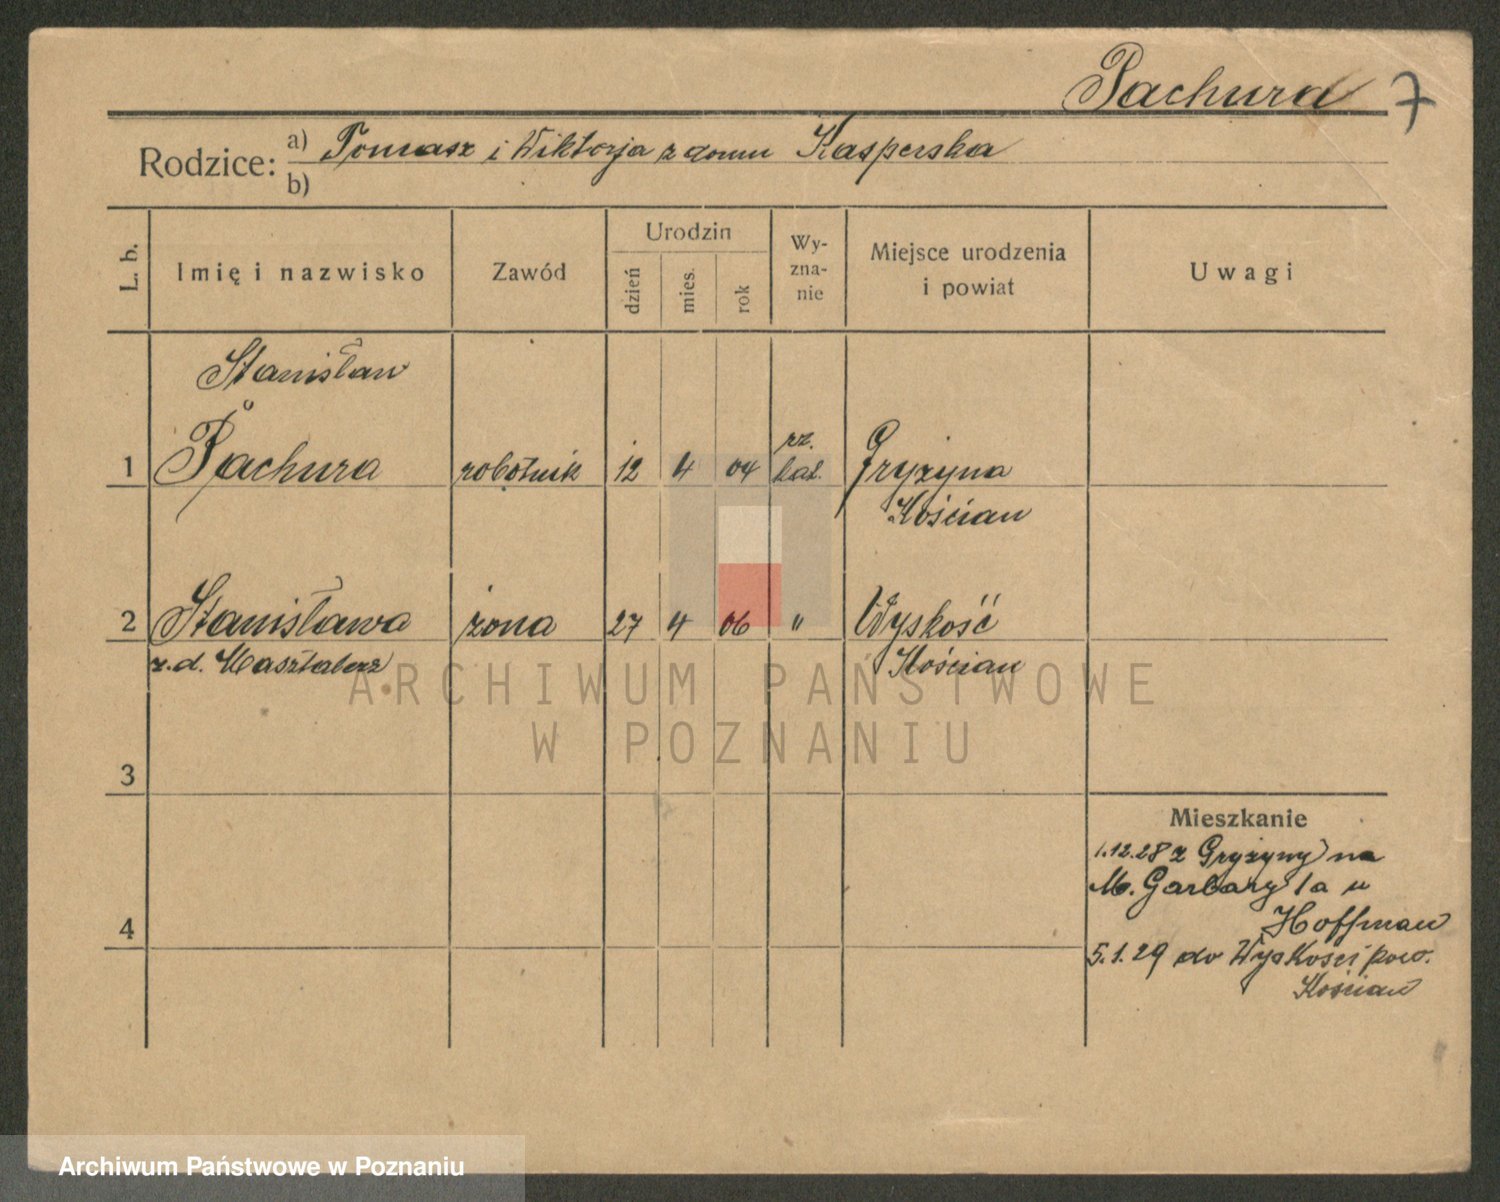 Pachura 7
Rodzice: a) Tomasz i Wiktorja z domu Kasperska
b)
L. b. Imię i nazwisko Zawód Urodzin dzień mies. rok Wy-zna-nie Miejsce urodzenia i powiat Uwagi
Stanisław
1 Pachura robotnik 12 4 04 rz. kat. Gryżyna
Kościan
2 Stanisława żona 27 4 06 " Wyskość
z.d. Masztalerz Kościan
3
4
Mieszkanie
1.12.28 z Gryżyny na
M. Garbary 1a u
Hoffman
5.1.29 do Wyskości pow.
Kościan
ARCHIWUM PAŃSTWOWE
W POZNANIU
Archiwum Państwowe w Poznaniu